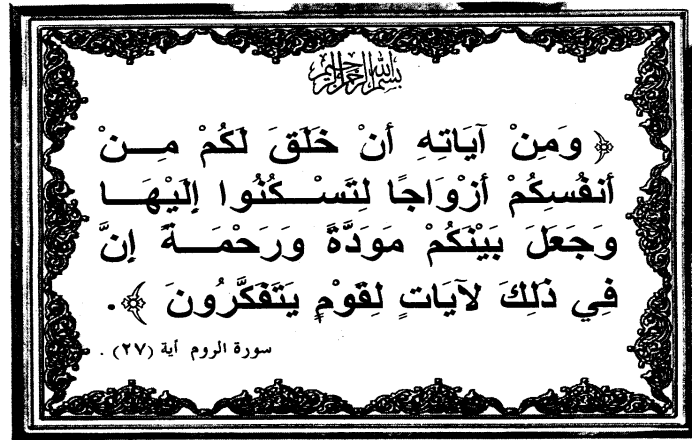 بسم الله الرحمن الرحيم
﴿ وَمِنْ آيَاتِهِ أَنْ خَلَقَ لَكُمْ مِـــنْ
أَنفُسِكُمْ أَزْوَاجًا لِتَسْـــكُنُوا إِلَيْهَـــا
وَجَعَلَ بَيْنَكُمْ مَوَدَّةً وَرَحْمَـــةً إِنَّ
فِي ذَلِكَ لآيَاتٍ لِقَوْمٍ يَتَفَكَّرُونَ ﴾ .
سورة الروم أية (٢٧) .